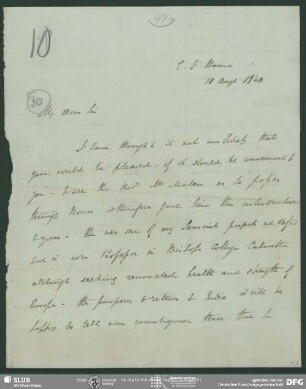 10
49
30
E. I. House
10 Augt 1840
My dear Sir
I have thought it not unlikely that
you would be pleased, if it should be convenient to
you to see the Revd Mr Malan as he passes
through Bonn & therefore give him this introduction
to you. He was one of my Sanscrit pupils at Oxford
but is now Professor in Bishops College Calcutta
although seeking renovated health and strength in
Europe - He purposes to return to India & will be
happy to tell our countrymen there that he
SLUB
Wir führen Wissen.
gefördert von der
DFG
Deutschen Forschungsgemeinschaft